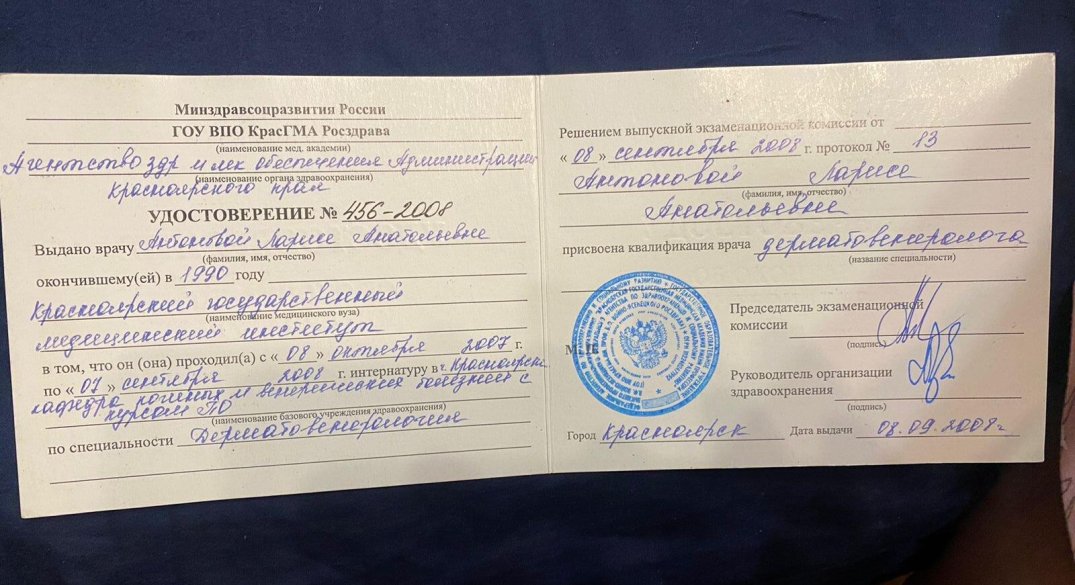 Минздравсоцразвития России
ГОУ ВПО КрасГМА Росздрава
(наименование мед. академии)
Агентство здр и лек обеспечения Администрации
(наименование органа здравоохранения)
Красноярского края
УДОСТОВЕРЕНИЕ № 456-2008
Выдано врачу Антоновой Ларисе Анатольевне
(фамилия, имя, отчество)
окончившему(ей) в 1990 году
Красноярский государственный
(наименование медицинского вуза)
медицинский институт
в том, что он (она) проходил(а) с « 08 » октября 2007 г.
по « 07 » сентября 2008 г. интернатуру в г. Красноярске
кафедра кожных и венерических болезней с
курсом ПО
(наименование базового учреждения здравоохранения)
по специальности Дерматовенерология
Решением выпускной экзаменационной комиссии от
« 08 » сентября 2008 г. протокол № 13
Антоновой Ларисе
(фамилия, имя, отчество)
Анатольевне
присвоена квалификация врача дерматовенеролога
(название специальности)
Председатель экзаменационной
комиссии
(подпись)
Руководитель организации
здравоохранения
(подпись)
Город Красноярск Дата выдачи 08.09.2008г